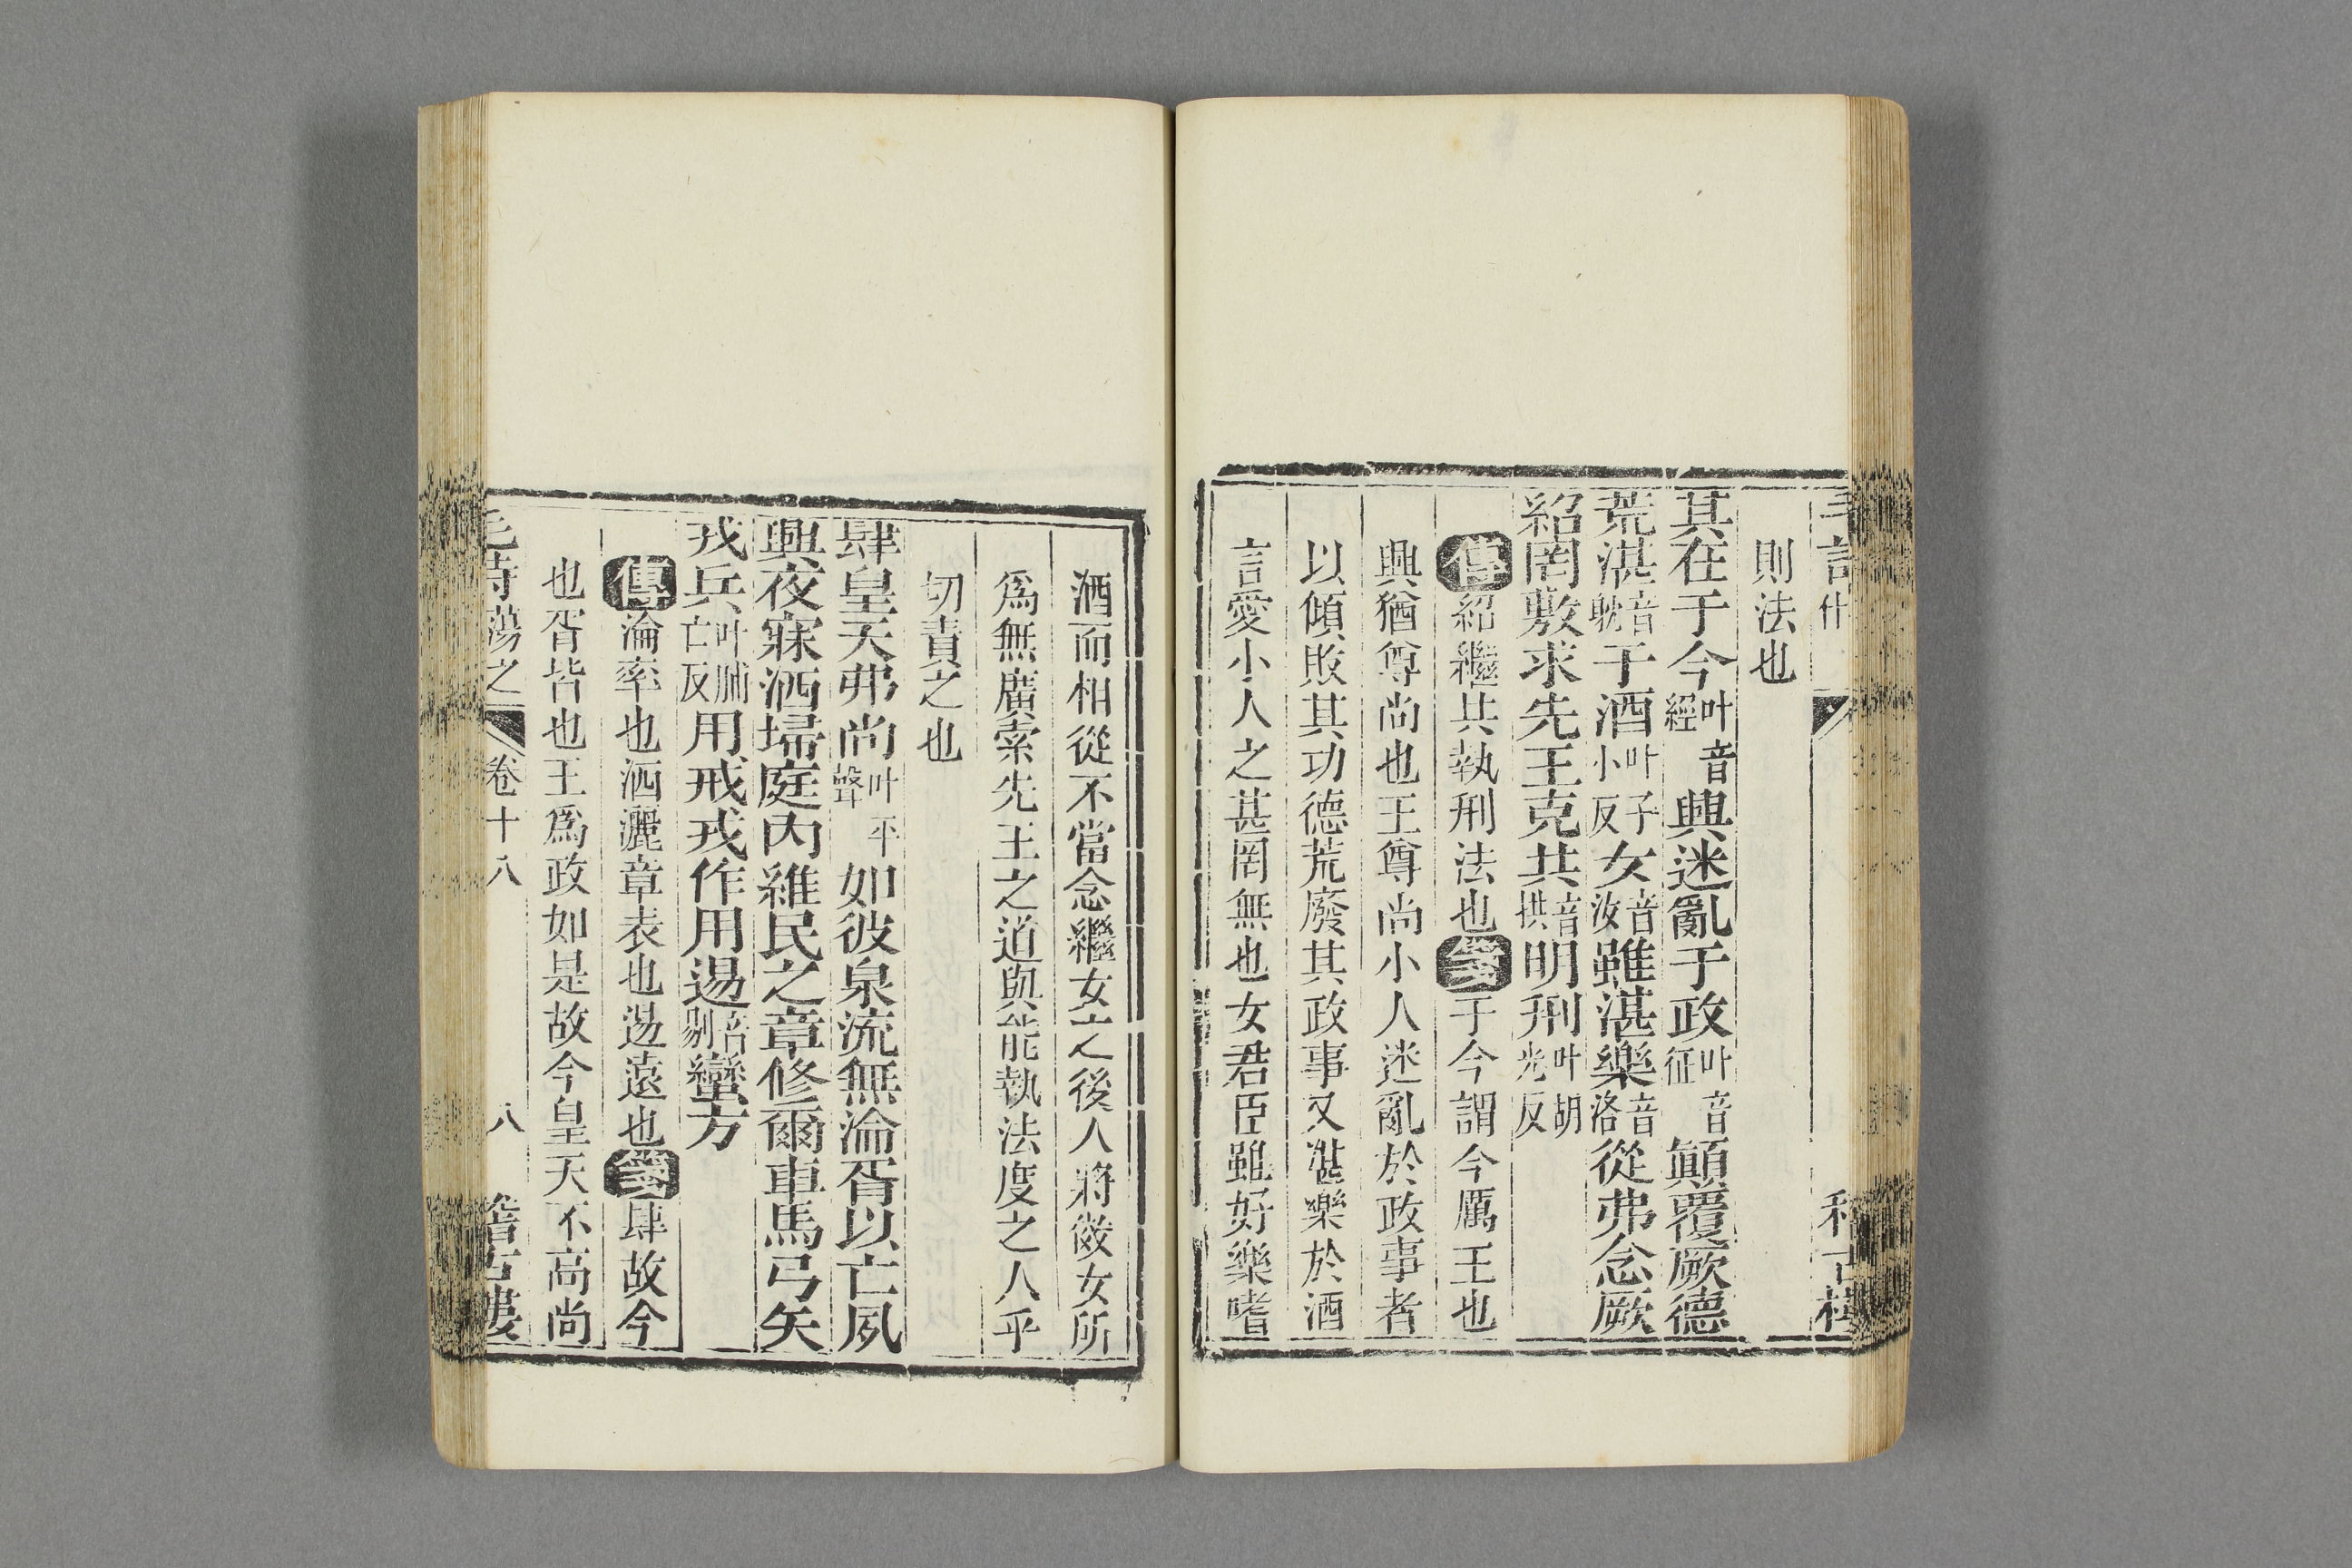 則法也
其在于今叶音經興迷亂于政叶音征顛覆厥德
荒湛音耽于酒叶子小反女音汝雖湛樂音洛從弗念厥
紹罔敷求先王克共音拱明刑叶胡光反
傳紹繼共執刑法也箋于今謂今厲王也
興猶尊尚也王尊尚小人迷亂於政事者
以傾敗其功德荒廢其政事又湛樂於酒
言愛小人之甚罔無也女君臣雖好樂嗜
酒而相從不當念繼女之後人將傚女所
爲無廣索先王之道與能執法度之人乎
切責之也
肆皇天弗尚叶平聲如彼泉流無淪胥以亡夙
興夜寐洒埽庭内維民之章修爾車馬弓矢
戎兵叶脯亡反用戒戎作用逷音剔蠻方
傳淪率也洒灑章表也逷遠也箋肆故今
也胥皆也王爲政如是故今皇天不高尚
毛詩蕩之 卷十八 八 稽古樓